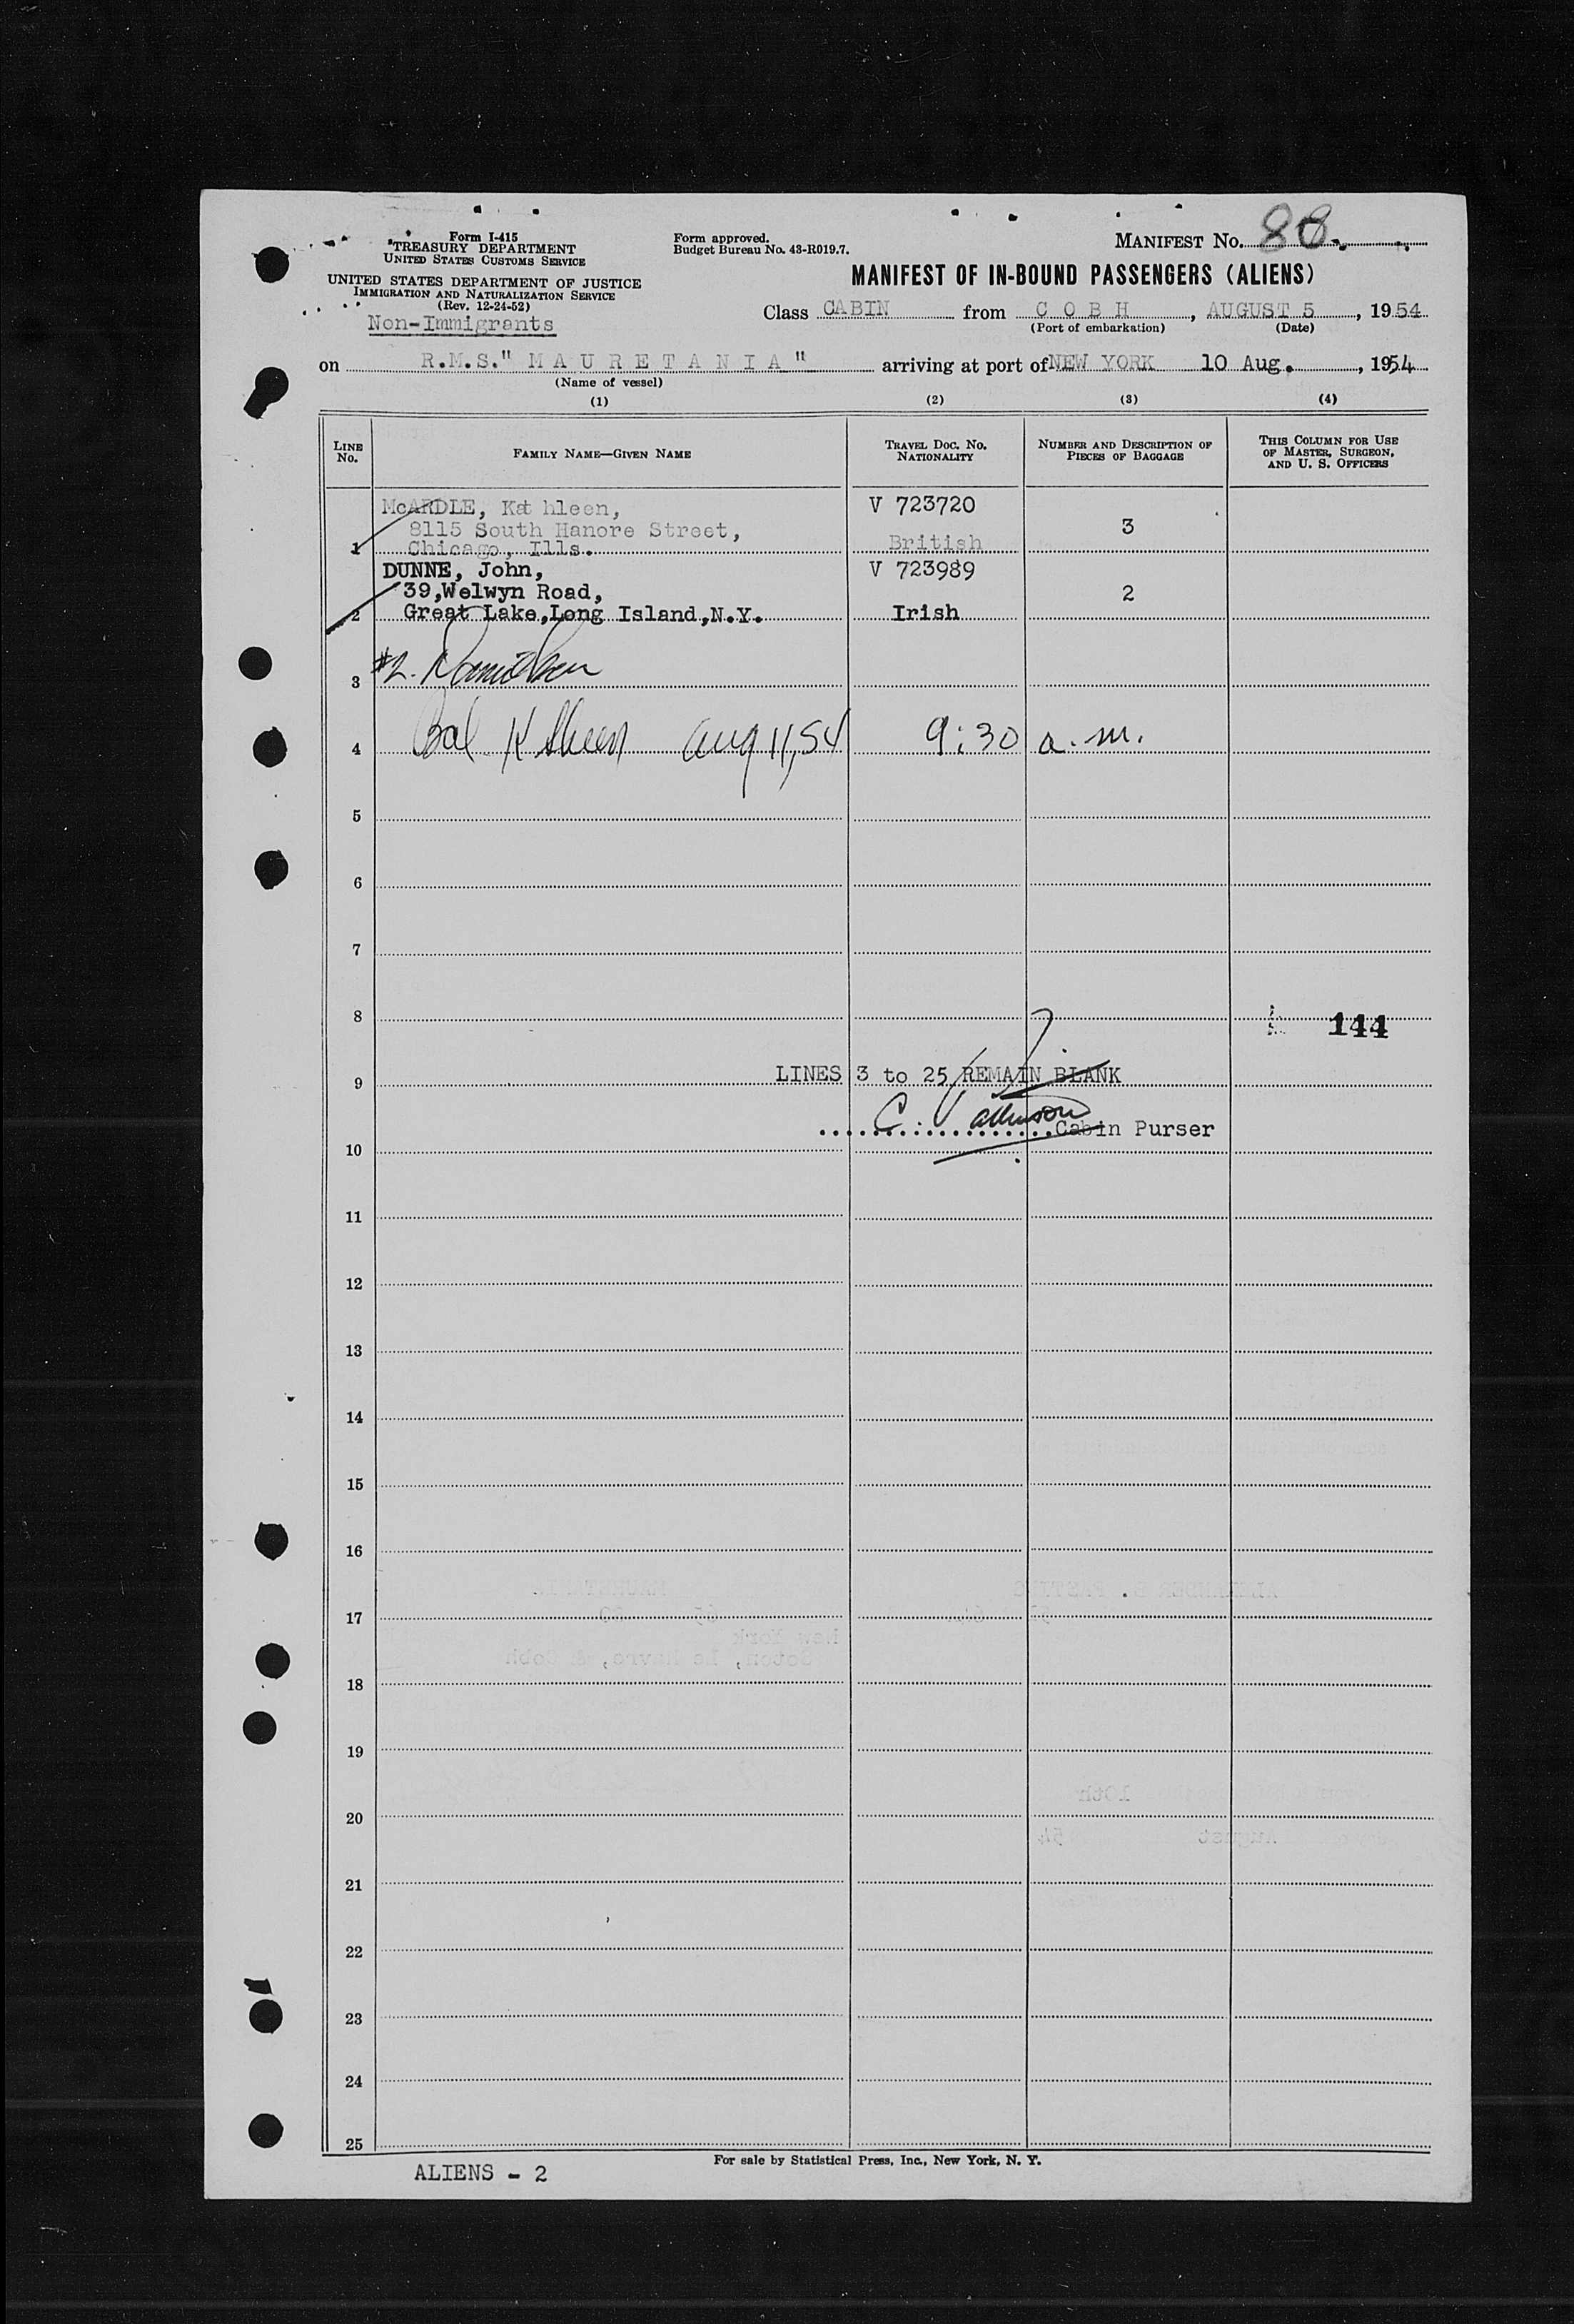 Form I-415
TREASURY DEPARTMENT
UNITED STATES CUSTOMS SERVICE
UNITED STATES DEPARTMENT OF JUSTICE
IMMIGRATION AND NATURALIZATION SERVICE
(Rev. 12-24-52)
Non-Immigrants
Form approved.
Budget Bureau No. 43-R019.7.
MANIFEST NO. 88
MANIFEST OF IN-BOUND PASSENGERS (ALIENS)
Class CABIN from C O B H, AUGUST 5, 1954
(Port of embarkation) (Date)
on R.M.S." M A U R E T A N I A " arriving at port of NEW YORK 10 Aug., 1954
(Name of vessel)
(1) (2) (3) (4)
LINE No. FAMILY NAME—GIVEN NAME TRAVEL DOC. NO. NATIONALITY NUMBER AND DESCRIPTION OF PIECES OF BAGGAGE THIS COLUMN FOR USE OF MASTER, SURGEON, AND U. S. OFFICERS
McARDLE, Kathleen, V 723720
8115 South Hanore Street, 3
1 Chicago, Ills. British
DUNNE, John, V 723989
39,Welwyn Road, 2
2 Great Lake,Long Island,N.Y. Irish
3 #2.
4 Bal Aug 11, 54 9:30 a.m.
5
6
7
8 144
9 LINES 3 to 25 REMAIN BLANK
C. Cabin Purser
10
11
12
13
14
15
16
17
18
19
20
21
22
23
24
25
For sale by Statistical Press, Inc., New York, N. Y.
ALIENS - 2